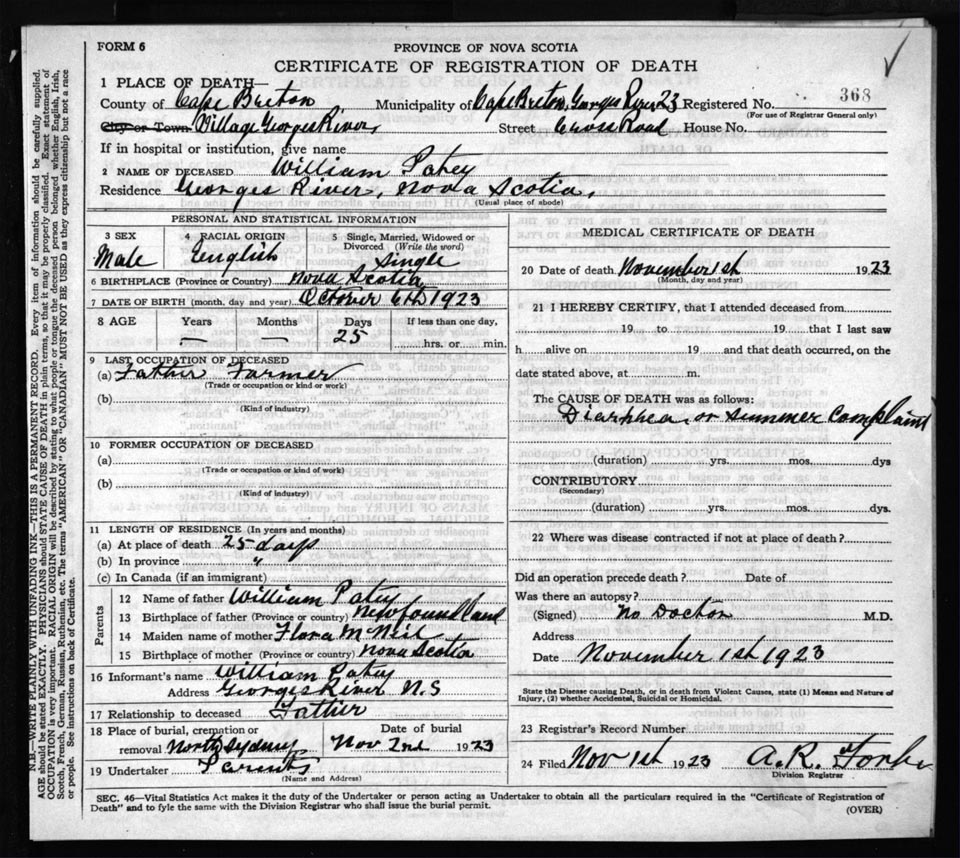 FORM 6
PROVINCE OF NOVA SCOTIA
CERTIFICATE OF REGISTRATION OF DEATH
1 PLACE OF DEATH—
County of Cape Breton Municipality of Cape Breton, Georges River 23 Registered No. 368
(For use of Registrar General only)
City or Town Village Georges River, Street Cross Road House No.
If in hospital or institution, give name
2 NAME OF DECEASED William Patey
Residence Georges River, Nova Scotia,
(Usual place of abode)
PERSONAL AND STATISTICAL INFORMATION
3 SEX Male
4 RACIAL ORIGIN English
5 Single, Married, Widowed or Divorced (Write the word) Single
6 BIRTHPLACE (Province or Country) Nova Scotia
7 DATE OF BIRTH (month, day and year) October 6th 1923
8 AGE Years Months Days If less than one day,
— — 25 hrs. or min.
9 LAST OCCUPATION OF DECEASED
(a) Father Farmer
(Trade or occupation or kind of work)
(b)
(Kind of industry)
10 FORMER OCCUPATION OF DECEASED
(a)
(Trade or occupation or kind of work)
(b)
(Kind of industry)
11 LENGTH OF RESIDENCE (In years and months)
(a) At place of death 25 days
(b) In province "
(c) In Canada (if an immigrant)
Parents
12 Name of father William Patey
13 Birthplace of father (Province or country) Newfoundland
14 Maiden name of mother Flora McNeil
15 Birthplace of mother (Province or country) Nova Scotia
16 Informant's name William Patey
Address Georges River N.S
17 Relationship to deceased Father
18 Place of burial, cremation or removal North Sydney Date of burial Nov 2nd 1923
19 Undertaker Parents
(Name and Address)
MEDICAL CERTIFICATE OF DEATH
20 Date of death November 1st 1923
(Month, day and year)
21 I HEREBY CERTIFY, that I attended deceased from
19 to 19 that I last saw
h alive on 19 and that death occurred, on the
date stated above, at m.
The CAUSE OF DEATH was as follows:
Diarrhea or summer complaint
(duration) yrs. mos. dys
CONTRIBUTORY
(Secondary)
(duration) yrs. mos. dys.
22 Where was disease contracted if not at place of death?
Did an operation precede death? Date of
Was there an autopsy?
(Signed) No Doctor M.D.
Address
Date November 1st 1923
State the Disease causing Death, or in death from Violent Causes, state (1) Means and Nature of
Injury, (2) whether Accidental, Suicidal or Homicidal.
23 Registrar's Record Number
24 Filed Nov 1st 1923 A. R. Forbes
Division Registrar
SEC. 46—Vital Statistics Act makes it the duty of the Undertaker or person acting as Undertaker to obtain all the particulars required in the "Certificate of Registration of
Death" and to fyle the same with the Division Registrar who shall issue the burial permit.
(OVER)
N.B.—WRITE PLAINLY WITH UNFADING INK—THIS IS A PERMANENT RECORD. Every item of information should be carefully supplied.
AGE should be stated EXACTLY. PHYSICIANS should STATE CAUSE OF DEATH in plain terms, so that it may be properly classified. Exact statement of
OCCUPATION is very important. RACIAL ORIGIN will be described by stating to what people or tongue the deceased person belonged whether English, Irish,
Scotch, French, German, Russian, Ruthenian, etc. The terms "AMERICAN" OR "CANADIAN" MUST NOT BE USED as they express citizenship but not a race
or people. See instructions on back of Certificate.